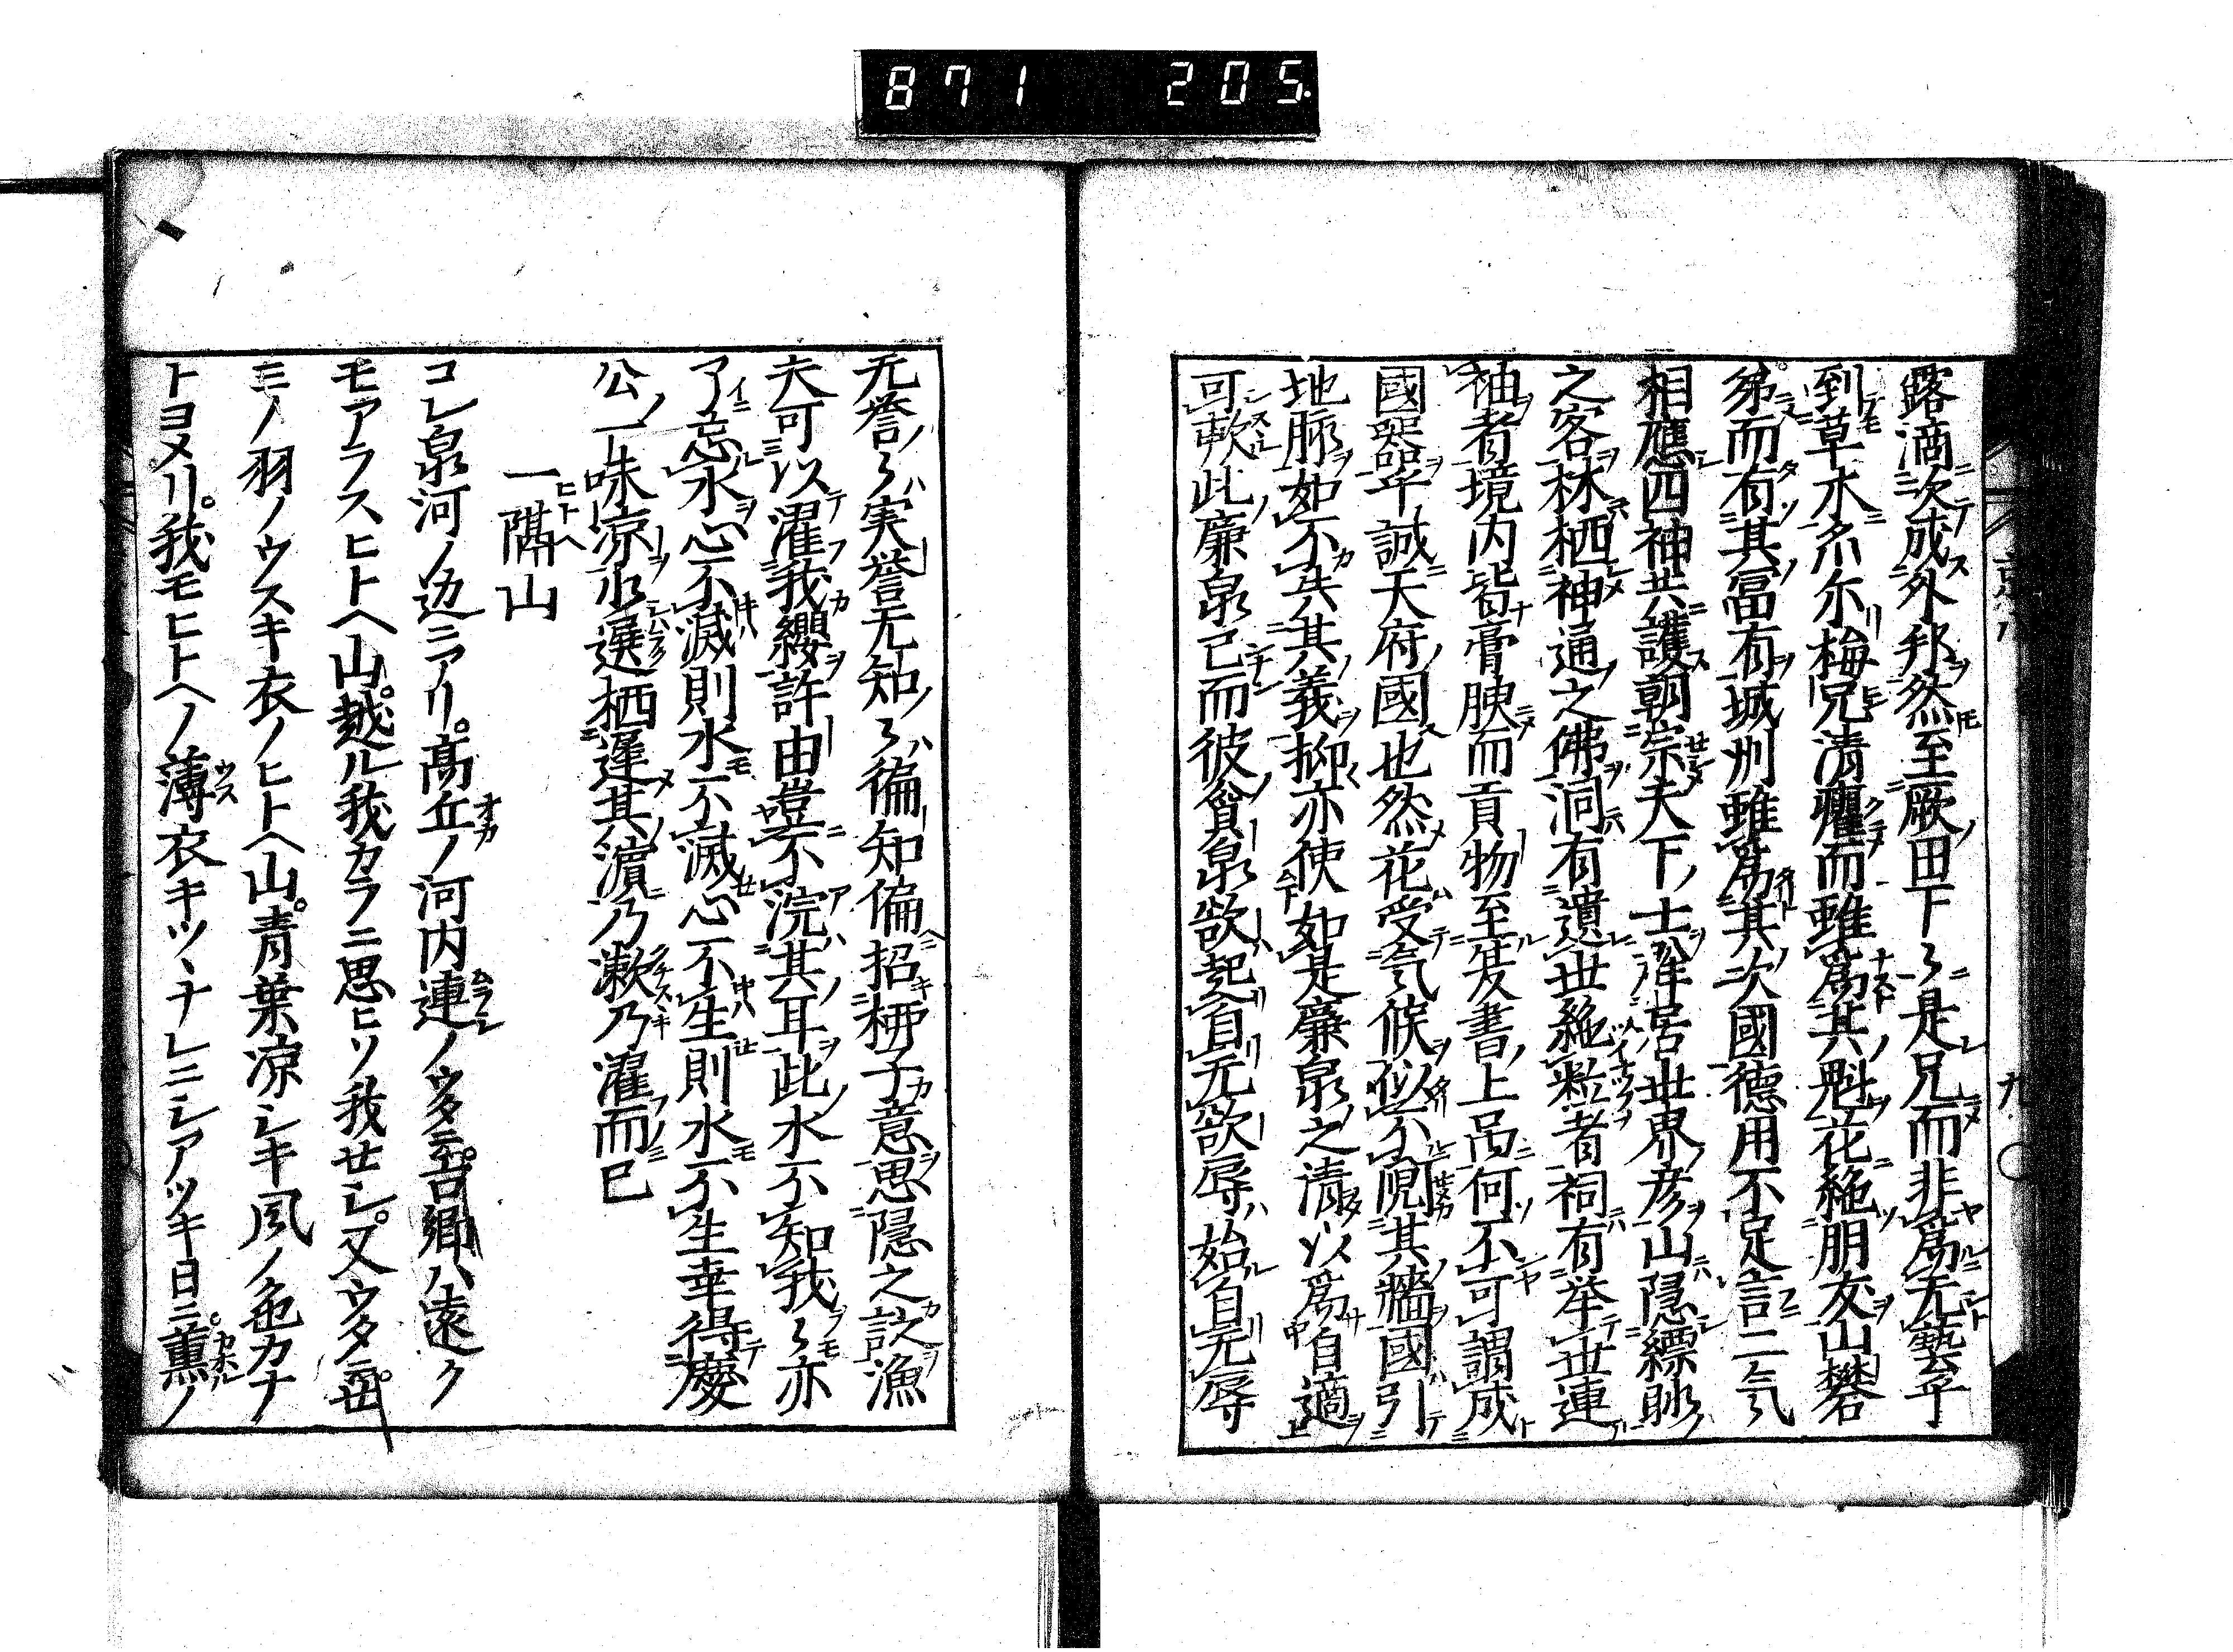 871 205.
露滴次成外邦然至厥田下〻是兄而非爲无藝乎
到草木尓梅兄清癯而雖爲其魁花絶朋友山礬
弟而有其冨有城州雖爲其次國德用不足言二氣
相應四神共護朝宗天下士渾居世界彦山隱縹眇
之客林栖神通之佛洞有遺世絶粒者祠有挙世連
袖者境内皆膏腴而貢物至筏書上呂何不可謂成
國器乎誠天府國也然花受氣候似不児其艢國引
地脉如不共其義抑亦使如是廉泉之清以爲自適
可歟此廉泉已而彼貪泉欲起自无欲辱始自无辱
九
无誉〻実誉无知〻徧知偏招栖子意思隱之詠漁
夫可以濯我纓許由豈不浣其耳此水不知我〻亦
了忘水心不滅則水不滅心不生則水不生幸得慶
公一味凉氷選栖遲其濵乃漱乃濯而已
一隔山
コレ泉河ノ辺ニアリ。髙丘ノ河内連ノウタニ。古郷ハ遠ク
モアラスヒトヘ山。越ル我カラニ思ヒソ我セシ。又ウタニ。世
ミノ羽ノウスキ衣ノヒトヘ山。青葉凉シキ風ノ色カナ
トヨメリ。我モヒトヘノ薄衣キツヽナレニシアツキ日ニ。薫ノ